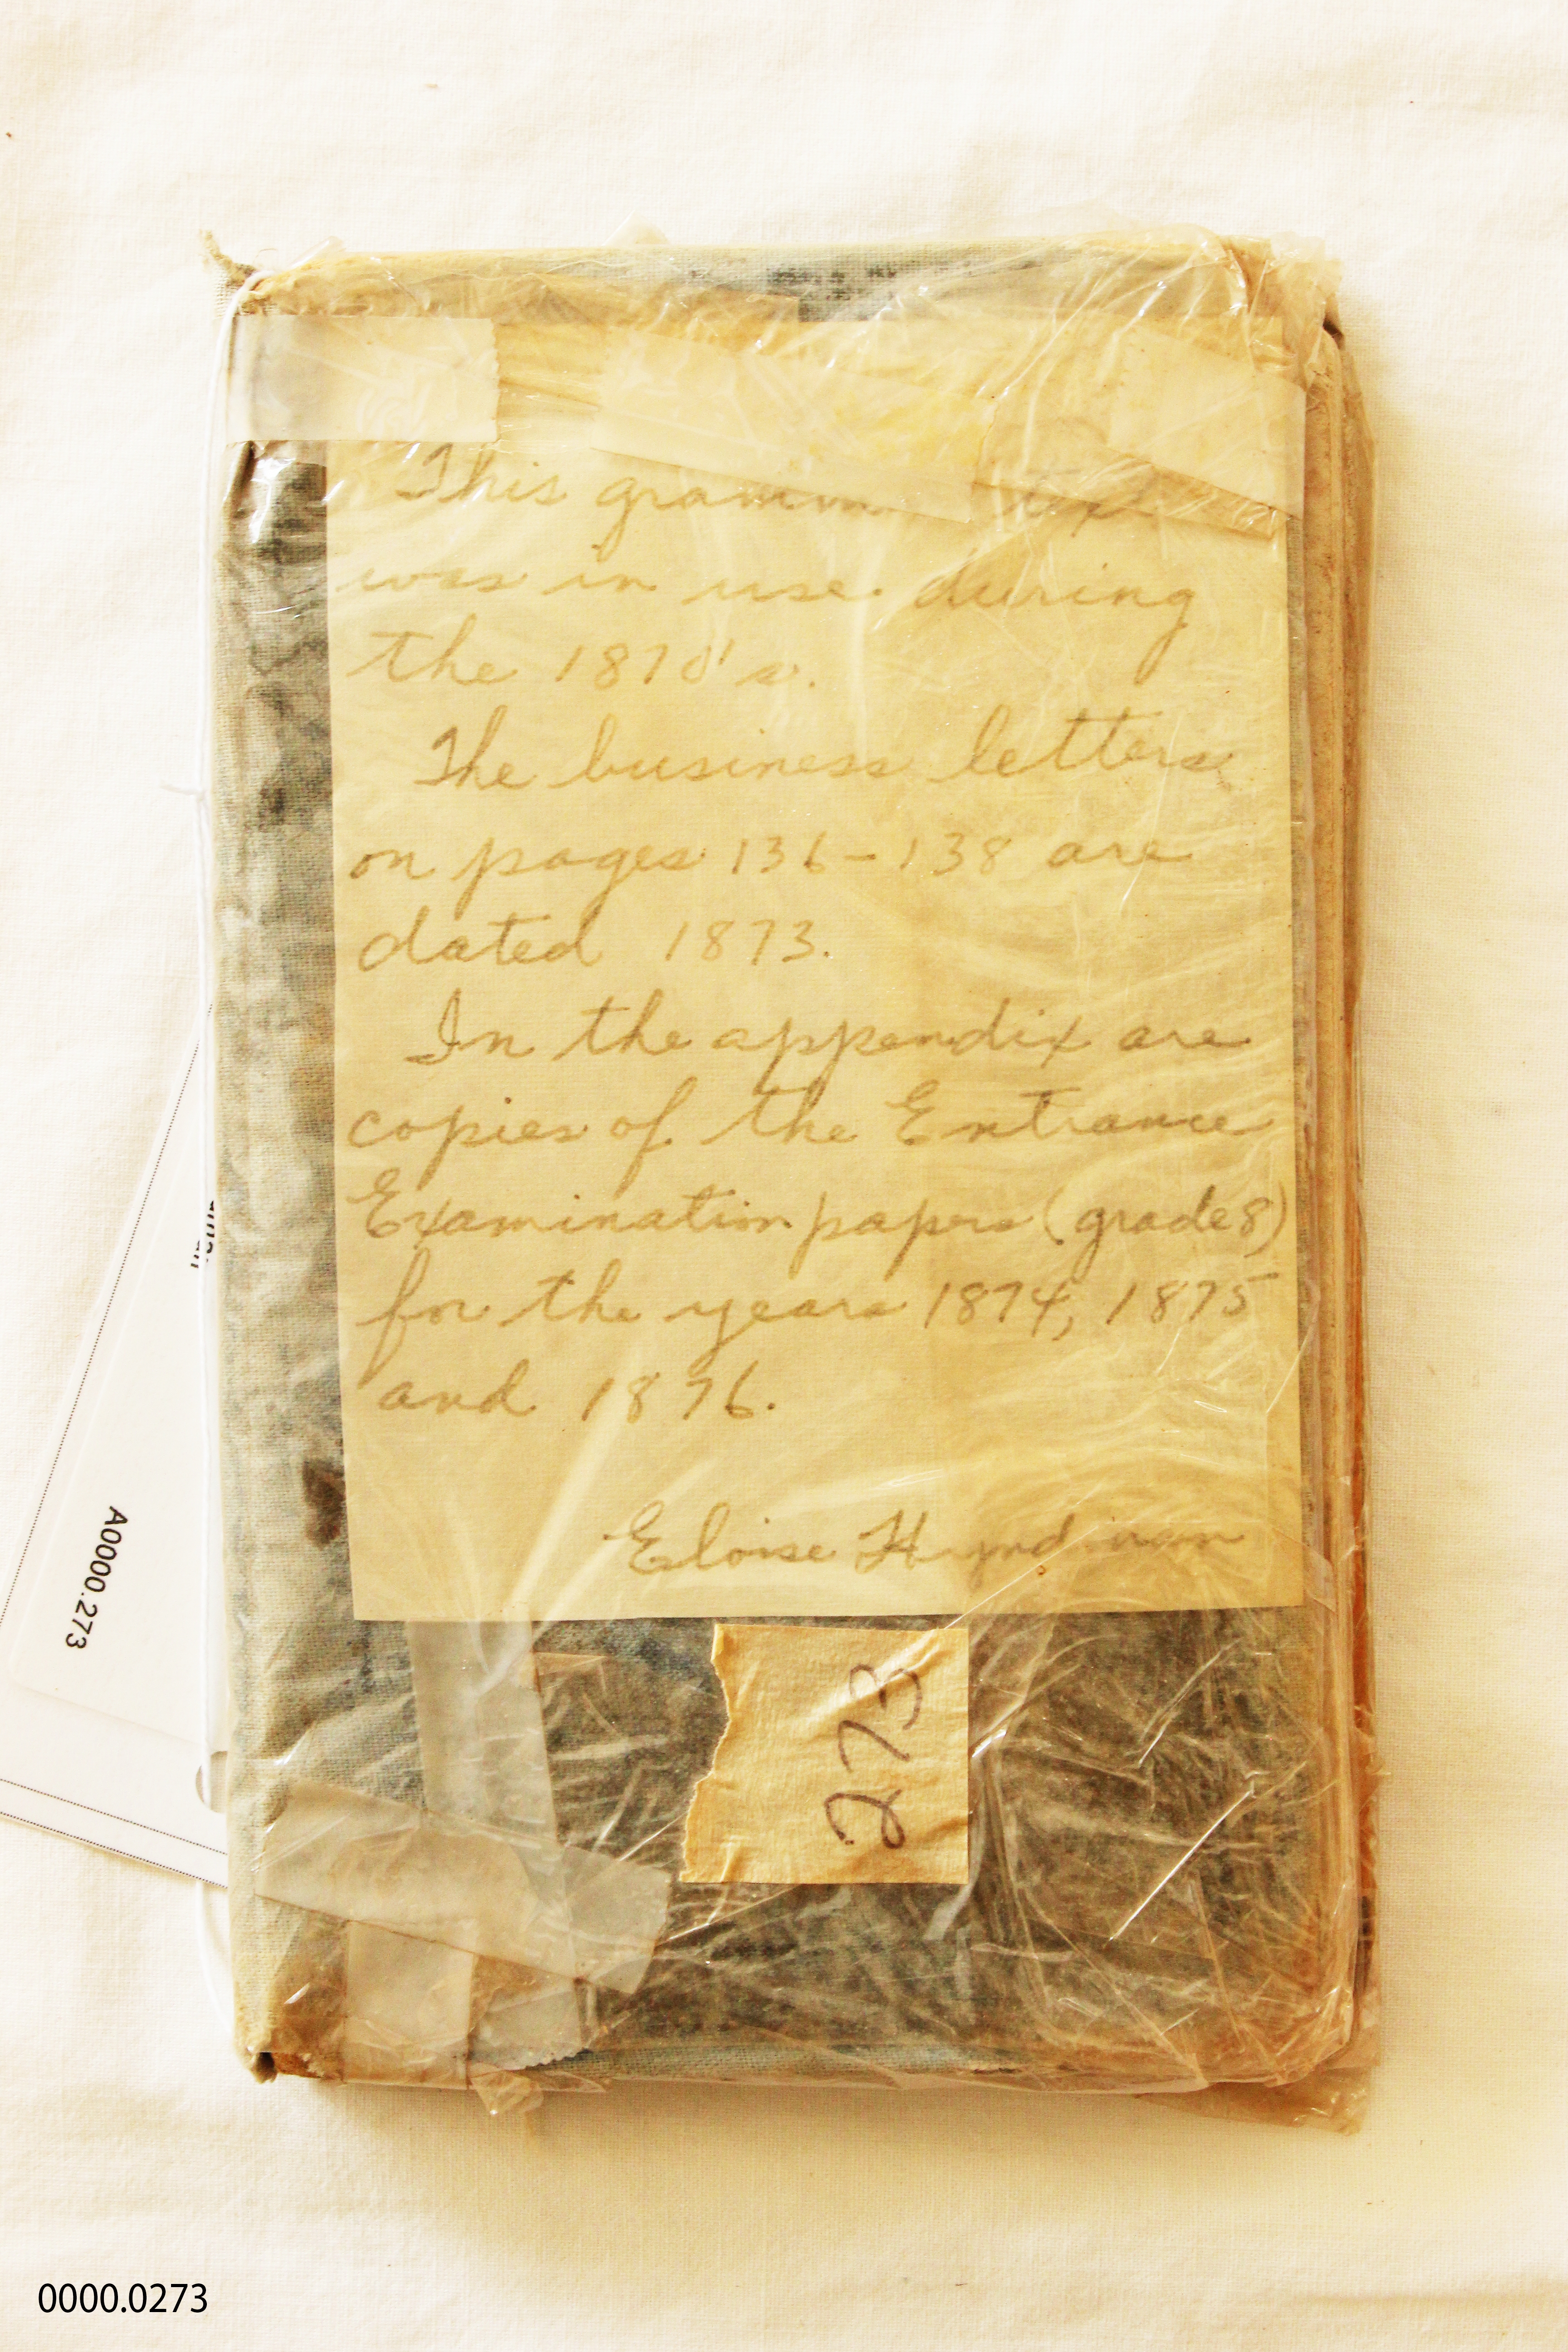 This gramm text
was in use during
the 1870's.
The business letters
on pages 136-138 are
dated 1873.
In the appendix are
copies of the Entrance
Examination papers (grade 8)
for the years 1874, 1875
and 1876.
Eloise Hyndman
273
A0000.273
0000.0273